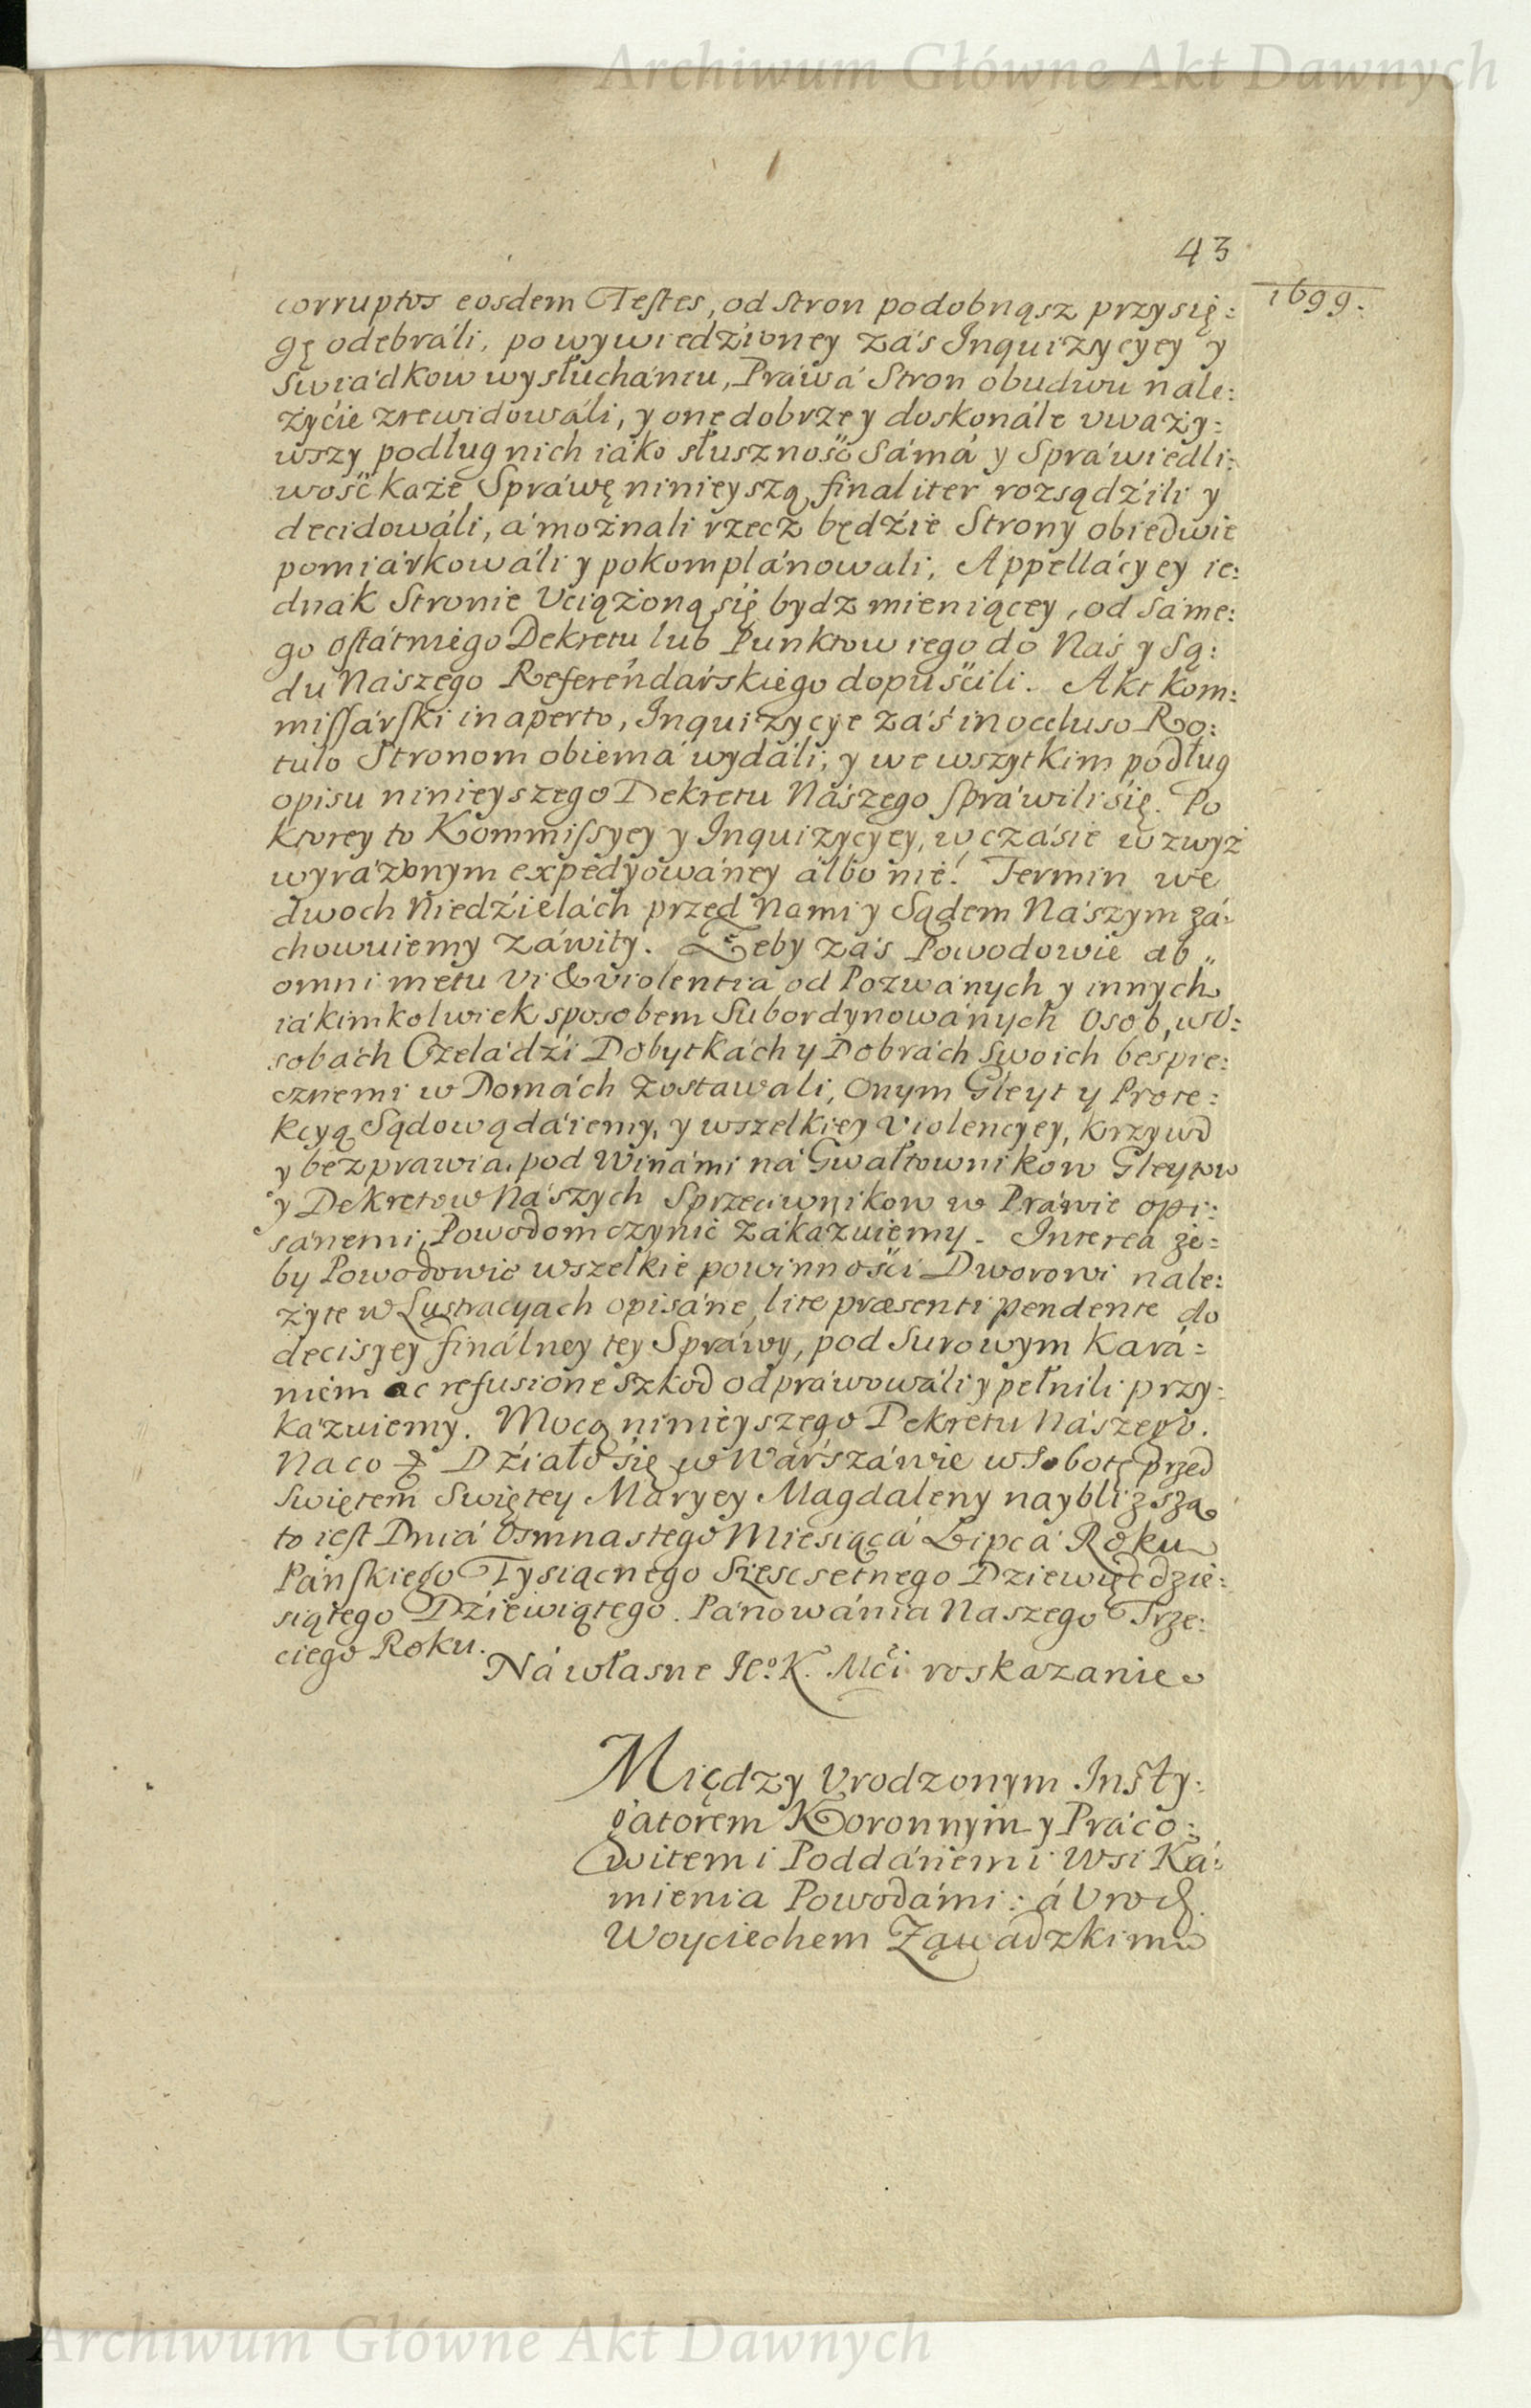 Archiwum Główne Akt Dawnych
43
1699.
corruptos eosdem Testes, od Stron podobnąsz przysię:
gę odebráli, po wywiedzioney zás Inquizycyey y
Swiádkow wysłuchániu, Práwá Stron obudwu nale:
życie zrewidowáli, y onę dobrze y doskonále vważy:
wszy podług nich iáko słuszność Sámá y Spráwiedli:
wość każe Spráwę ninieyszą finaliter rozsądźili y
decidowáli, á możnali rzecz będźie Strony obiedwie
pomiárkowáli y pokomplánowali, Appellácyey ie:
dnák Stronie Vciążoną się bydz mieniącey, od Sáme:
go ostátniego Dekretu lub Punktow iego do Nas y Są:
du Nászego Referendárskiego dopuścili. Akt Kom:
missárski in aperto, Inquizycye záś in occluso Ro:
tulo Stronom obiemá wydáli, y we wszytkim podług
opisu ninieyszego Dekretu Nászego spráwili się. Po
ktorey to Kommissyey y Inquizycyey, w czásie wzwyż
wyráżonym expedyowáney álbo nié! Termin we
dwoch Niedźielách przed Nami y Sądem Nászym zá:
chowuiemy záwity. Żeby zás Powodowie ab
omni metu vi & violentia od Pozwánych y innych
iákimkolwiek sposobem Subordynowánych Osob, w O:
sobách Czeladźi Dobytkách y Dobrách Swoich bespie:
cznemi w Domách zostawali, Onym Gleyt y Prote:
kcyą Sądową dáiemy, y wszelkiey Violencyey, krzywd
y bezprawia, pod Winámi ná Gwałtownikow Gleytow
y Dekretow Nászych Sprzeciwnikow w Práwie opi:
sánemi, Powodom czynić zákazuiemy. Interea że:
by Powodowie wszelkie powinnośći Dworowi nale:
żyte w Lustracyach opisáne, lite præsenti pendente do
decisyey finálney tey Spráwy, pod Surowym Kará:
niem ac refusione szkod odpráwowáli y pełnili przy:
kázuiemy. Mocą ninieyszego Dekretu Nászego.
Na co &c Dźiało się w Wárszáwie w Sobotę przed
Swiętem Swiętey Maryey Magdaleny naybliższą
to iest Dniá Osmnastego Miesiącá Lipcá Roku
Páńskiego Tysiącnego Szescsetnego Dziewięćdzie:
siątego Dźiewiątego. Pánowánia Naszego Trze:
ciego Roku.
Ná własne Ie͠o K. Mći roskazanie
Między Vrodzonym Insty:
gatorem Koronnym y Práco:
witemi Poddánemi Wsi Ká:
mienia Powodámi: á Vrod.
Woyciechem Záwadzkim
Archiwum Główne Akt Dawnych